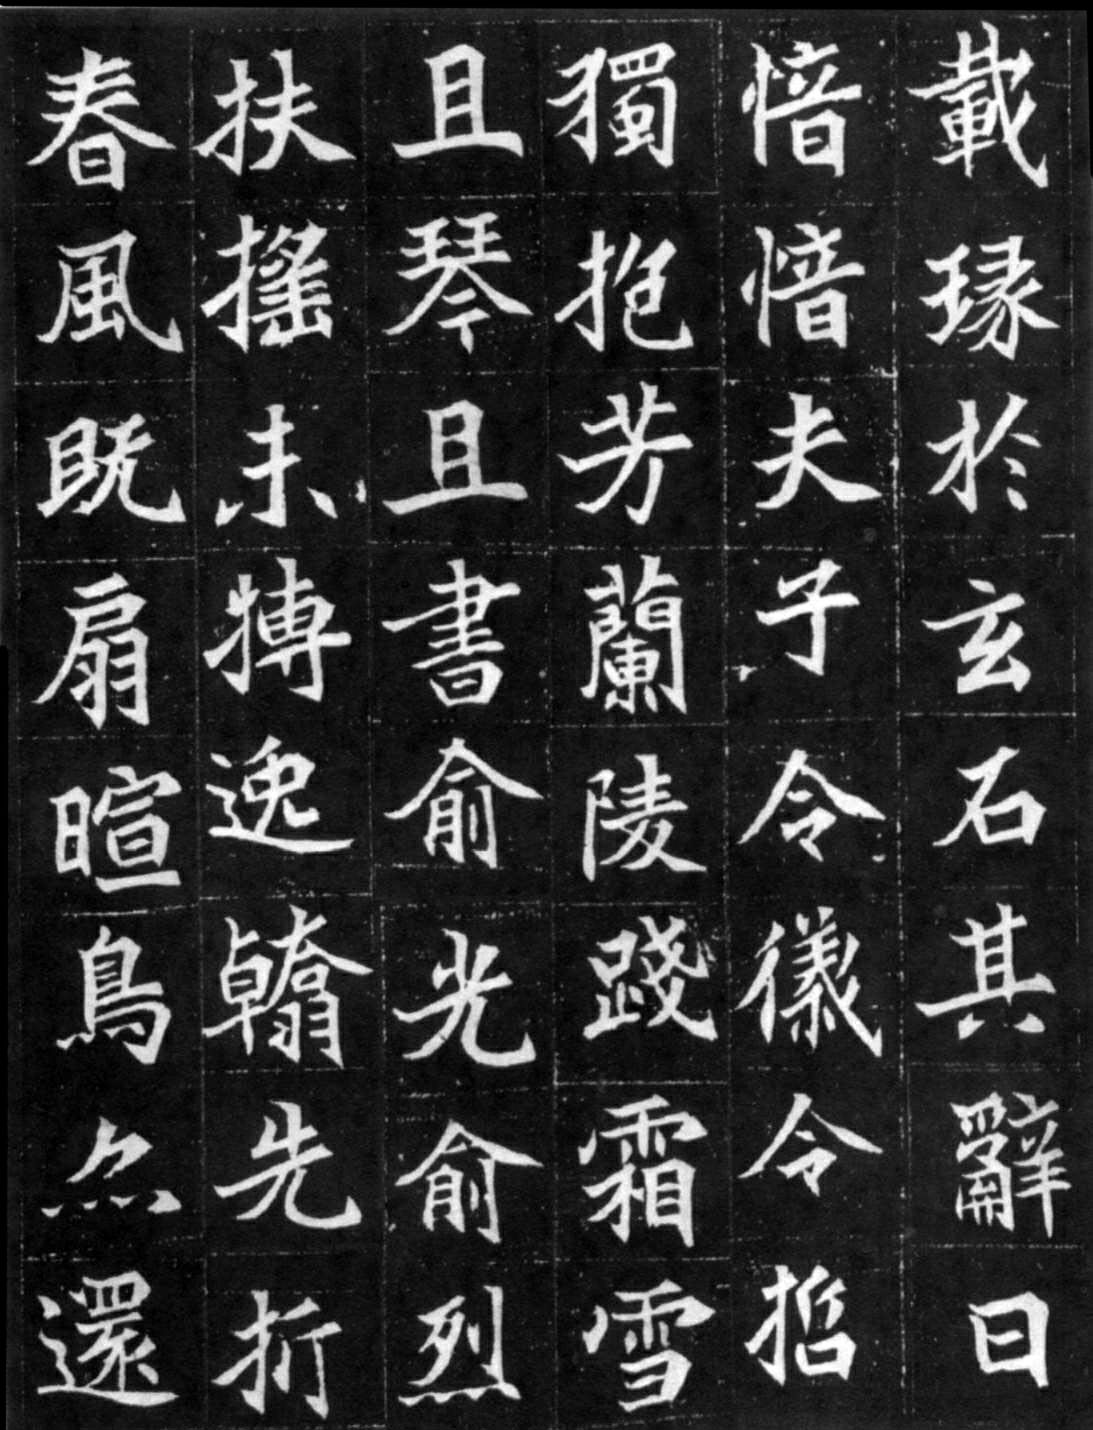 載瑑於玄石其辭曰
愔愔夫子令儀令哲
獨抱芳蘭陵踐霜雪
且琴且書俞光俞烈
扶搖未搏逸翰先折
春風既扇暄鳥亦還